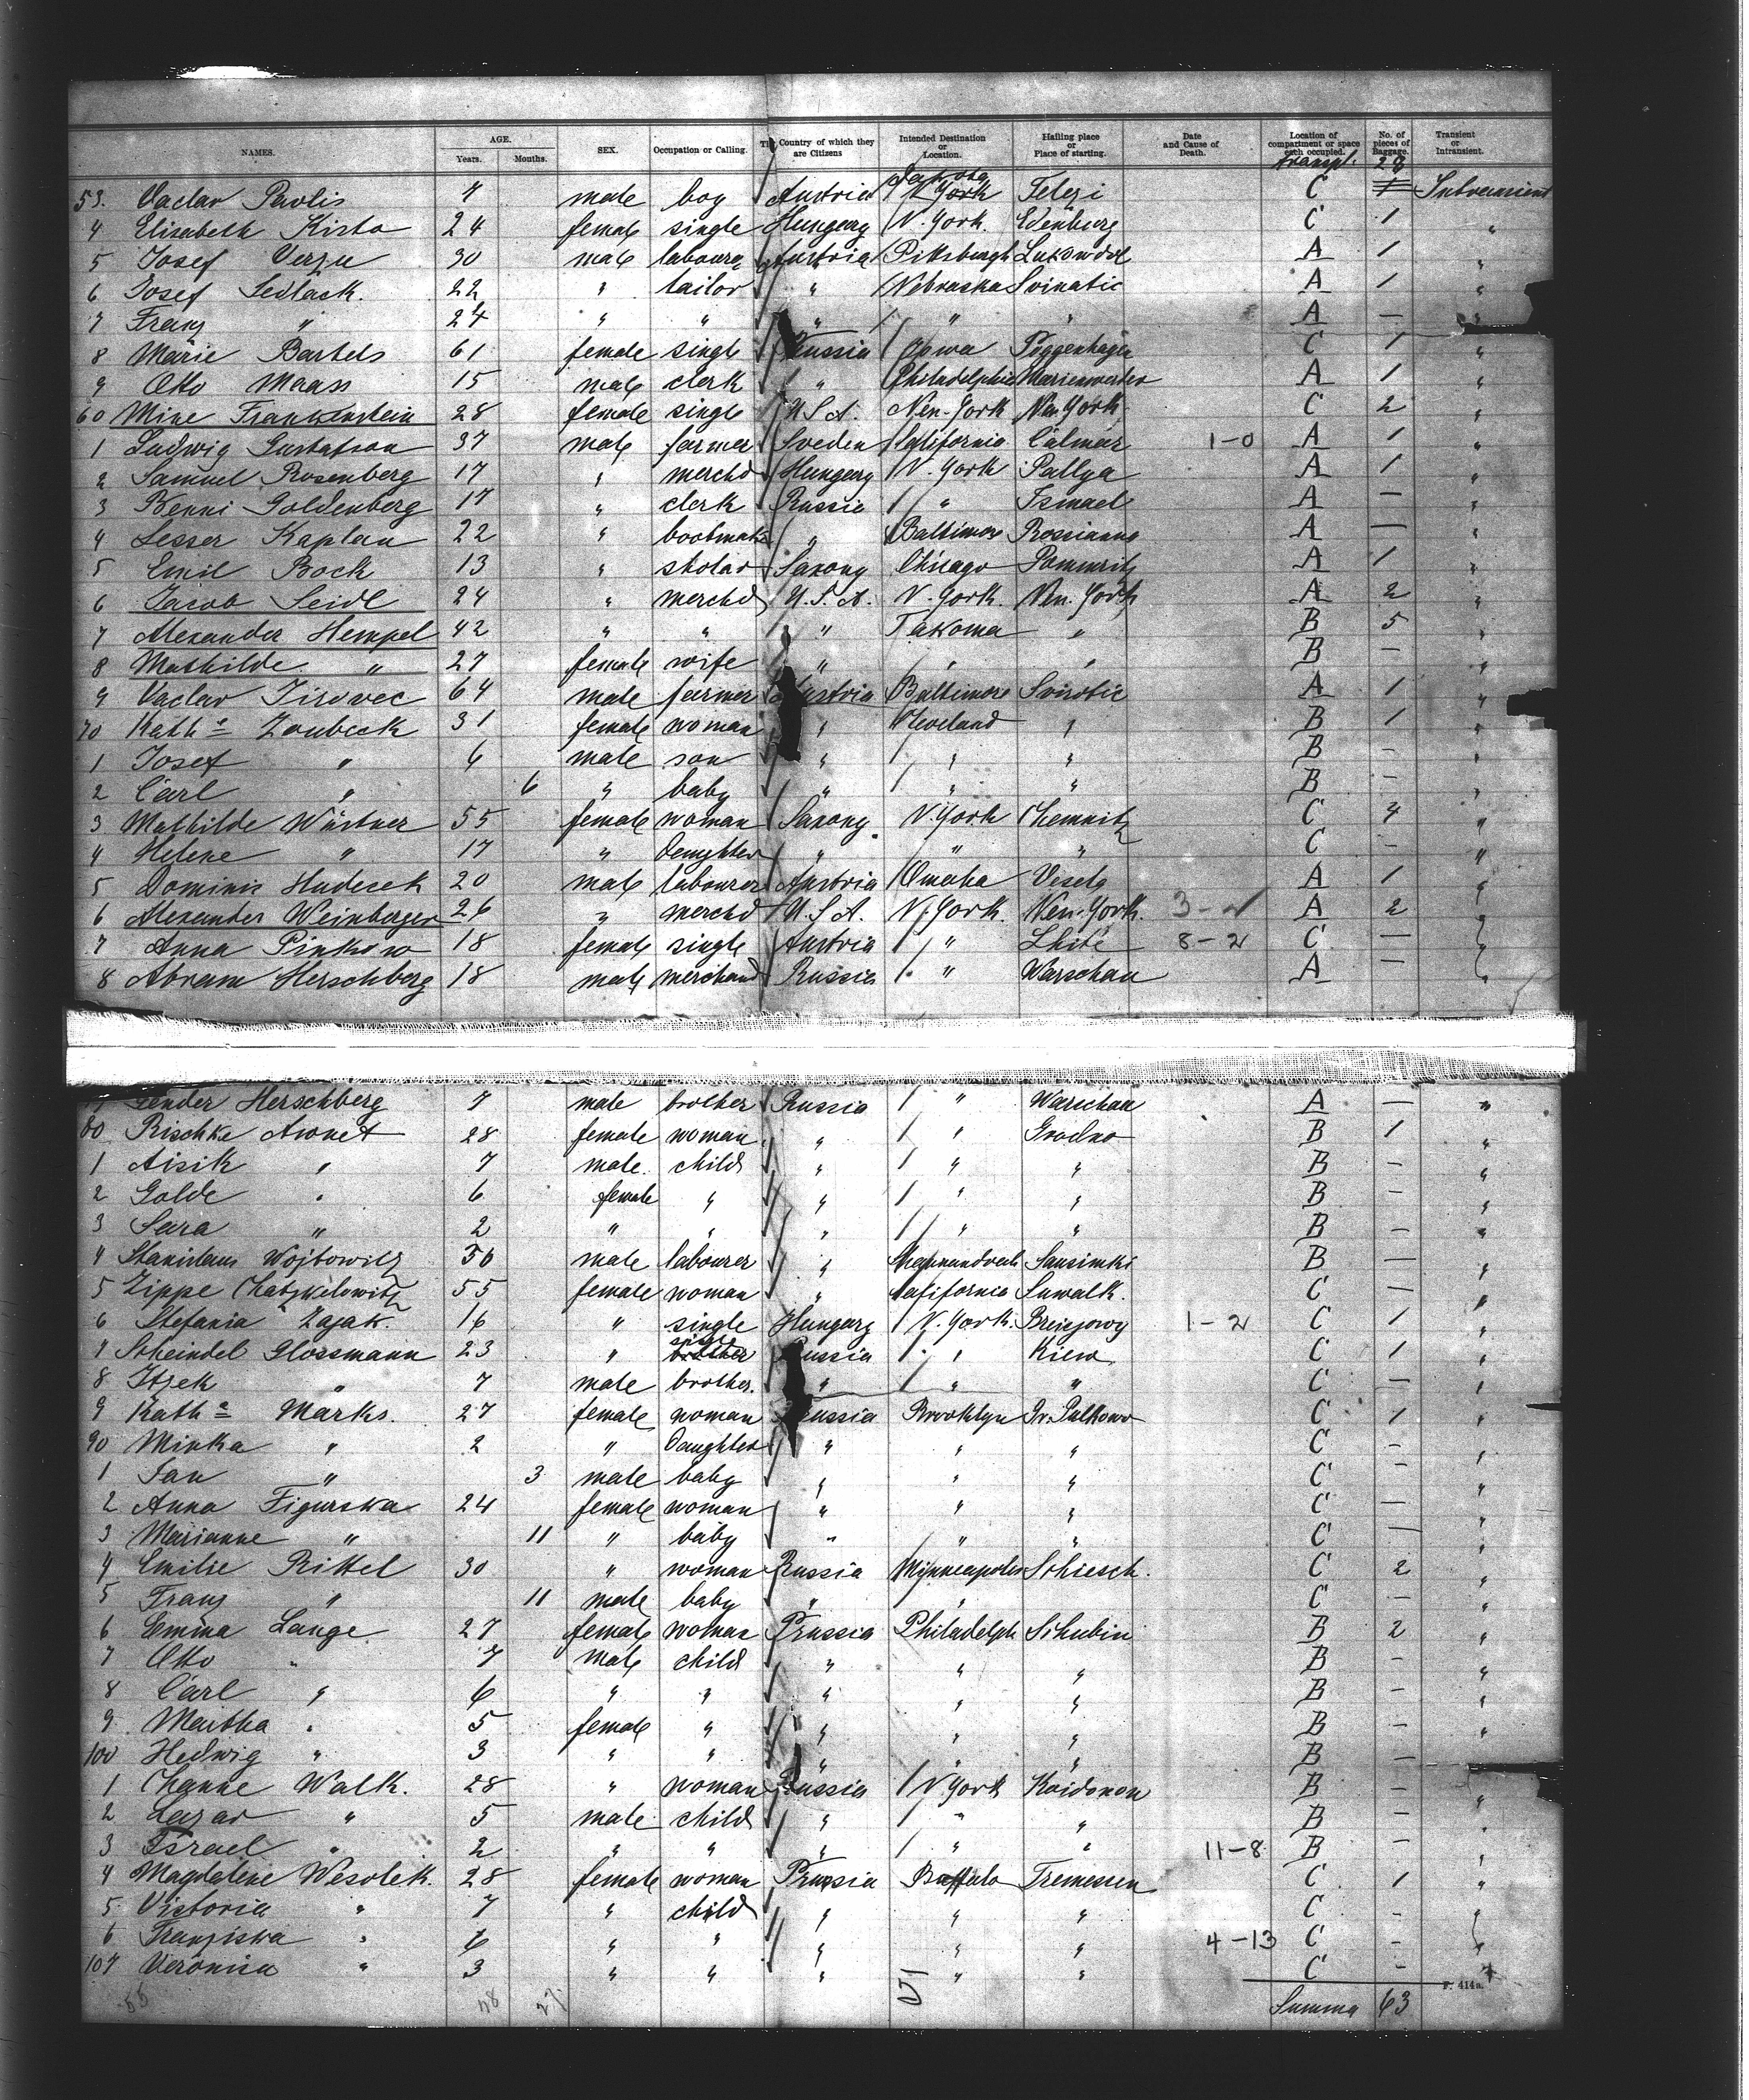 NAMES. AGE. Years. Months. SEX. Occupation or Calling. The Country of which they are Citizens Intended Destination or Location. Hailing place or Place of starting. Date and Cause of Death. Location of compartment or space each occupied. No. of pieces of Baggage. Transient or Intransient.
Transpt. 28
53. Vaclav Pavlis 7 male boy Austria Dakota N York Telezi C
4 Elisabeth Kirta 24 female single Hungary N. York. Edenburg C 1 "
5 Josef Verzu 30 male labourer Austria Pittsburgh A 1 "
6 Josef Sedlack. 22 " tailor " Nebraska Svinatic A 1 "
7 Franz " 24 " " " " " A — "
8 Marie Bartels 61 female single Prussia Iowa Poggenhagen C 1 "
9 Otto Maass 15 male clerk " Philadelphia Marienwerder A 1 "
60 Mine Frankenstein 28 female single U.S.A. New-York New York C 2 "
1 Ludwig Gustafson 37 male farmer Sveden California Calmar 1-0 A 1 "
2 Samuel Rosenberg 17 " merchd Hungary N. York Pallya A 1 "
3 Benni Goldenberg 17 " clerk Russia " Ismael A — "
4 Lesser Kaplan 22 " bootmak " Baltimore Rossianna A — "
5 Emil Bock 13 " skolar Saxony Chicago Pommritz A 1 "
6 Jacob Seidl 24 " merchd U.S.A. N. York. New. York A 2 "
7 Alexander Hempel 42 " " " Takoma " B 5 "
8 Mathilde " 27 female wife " " " B — "
9 Vaclav Jirovec 64 male farmer Austria Baltimore Svirotic A 1 "
70 Kath a Zoubeck 31 female woman " Cleveland " B 1 "
1 Josef " 6 male son " " " B - "
2 Carl " 6 " baby " " " B - "
3 Mathilde Wüstner 55 female woman Saxony N. York Chemnitz C 4 "
4 Helene " 17 " Daughter " " " C - "
5 Dominic Hudecek 20 male labourer Austria Omaha Vesela A 1 "
6 Alexander Weinberger 26 " merchd U.S.A. N. York. New-York. A 2 "
7 Anna Pinkow 18 female single Austria " Lhite 8-2 C — "
8 Abram Herschberg 18 male merchand Russia " Warschau A — "
Herschberg 7 male brother Russia " Warschau A — "
80 Rischke Awnet 28 female woman " " Grodno B 1 "
1 Aisik " 7 male child " " " B - "
2 Golde " 6 female " " " " B - "
3 Sara " 2 " " " " " B - "
4 Stanislaus Wojtowitz 36 male labourer " B — "
5 Zippe Chatzkelowitz 55 female woman " California Suwalk. C — "
6 Stefania Zajak. 16 " single Hungary N. York. 1-2 C 1 "
7 Scheindel Glossmann 23 " single Russia " Kiew C 1 "
8 Itzek " 7 male brother. " " " C — "
9 Kath a Marks. 27 female woman Prussia Brooklyn Gr. Palkowo C 1 "
90 Minka " 2 " Daughter " " " C - "
1 Jan " 3 male baby " " " C - "
2 Anna Figurska 24 female woman " " " C — "
3 Marianne " 11 " baby " " " C — "
4 Emilie Rittel 30 " woman Russia Minneapolis Schiesch. C 2 "
5 Franz " 11 male baby " " C - "
6 Emma Lange 27 female woman Prussia Philadelph Schubin B 2 "
7 Otto " 7 male child " " " B - "
8 Carl " 6 " " " " " B - "
9 Martha " 5 female " " " " B - "
100 Hedwig " 3 " " " " " B -
1 Channe Walk. 28 " woman Russia N York Koidonow B - "
2 Lazar " 5 male child " " " B - "
3 Israel " 2 " " " " " 11-8 B - "
4 Magdalene Wesolek. 28 female woman Prussia Buffalo Tremessen C 1 "
5 Victoria " 7 " child " " " C -
6 Franziska " 6 " " " " " 4-13 C -
107 Veronica " 3 " " " " " C -
F. 414a.
Summa 63